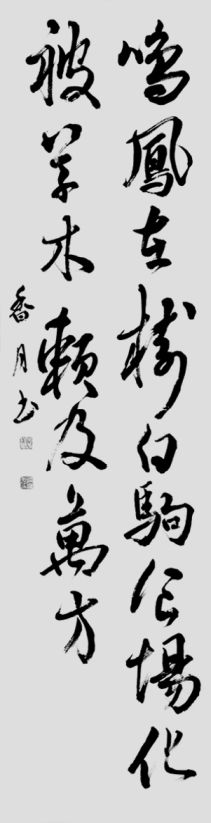 鳴鳳在樹白駒食場化
被草木賴及萬方
香月書